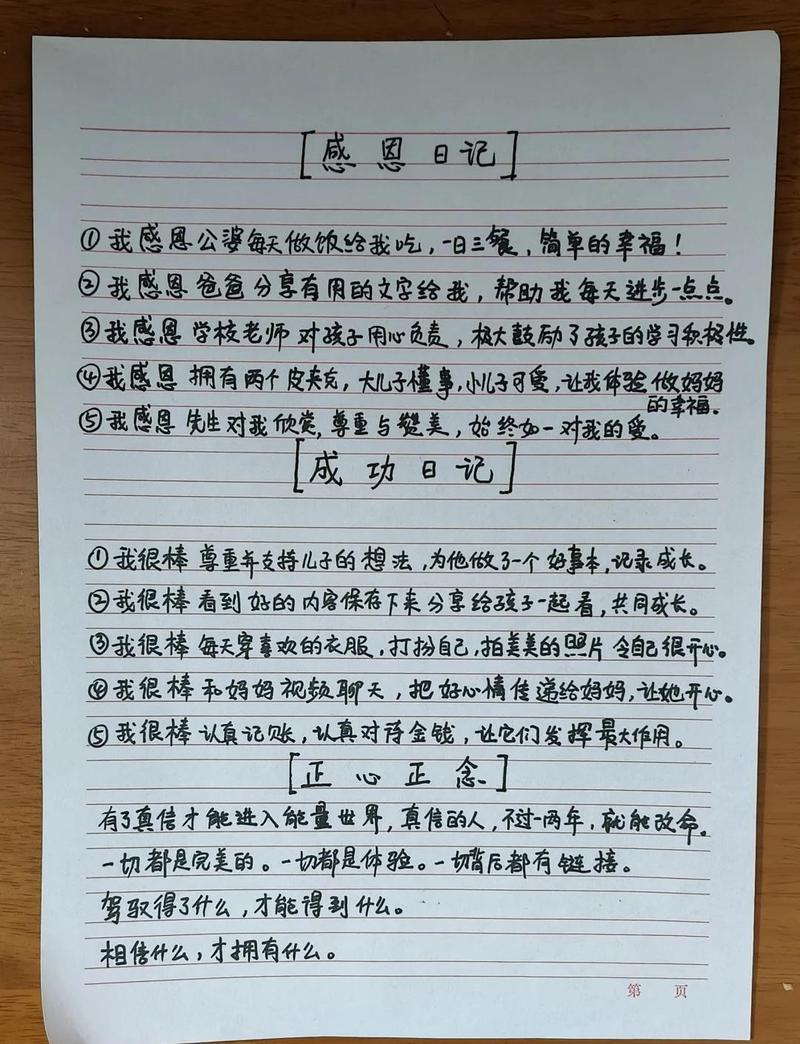 [感恩日记]
①我感恩公婆每天做饭给我吃，一日三餐，简单的幸福！
②我感恩爸爸分享有用的文字给我，帮助我每天进步一点点。
③我感恩学校老师对孩子用心负责，极大鼓励了孩子的学习积极性。
④我感恩拥有两个皮夹克，大儿子懂事，小儿子可爱，让我体验做妈妈
的幸福。
⑤我感恩先生对我欣赏，尊重与赞美，始终如一对我的爱。
[成功日记]
①我很棒尊重并支持儿子的想法，为他做了一个好事本，记录成长。
②我很棒看到好的内容保存下来分享给孩子一起看，共同成长。
③我很棒每天穿喜欢的衣服，打扮自己，拍美美的照片令自己很开心。
④我很棒和妈妈视频聊天，把好心情传递给妈妈，让她开心。
⑤我很棒认真记账，认真对待金钱，让它们发挥最大作用。
[正心正念]
有了真信才能进入能量世界，真信的人，不过一两年，就能改命。
一切都是完美的。一切都是体验。一切背后都有链接。
驾驭得了什么，才能得到什么。
相信什么，才拥有什么。
第 页